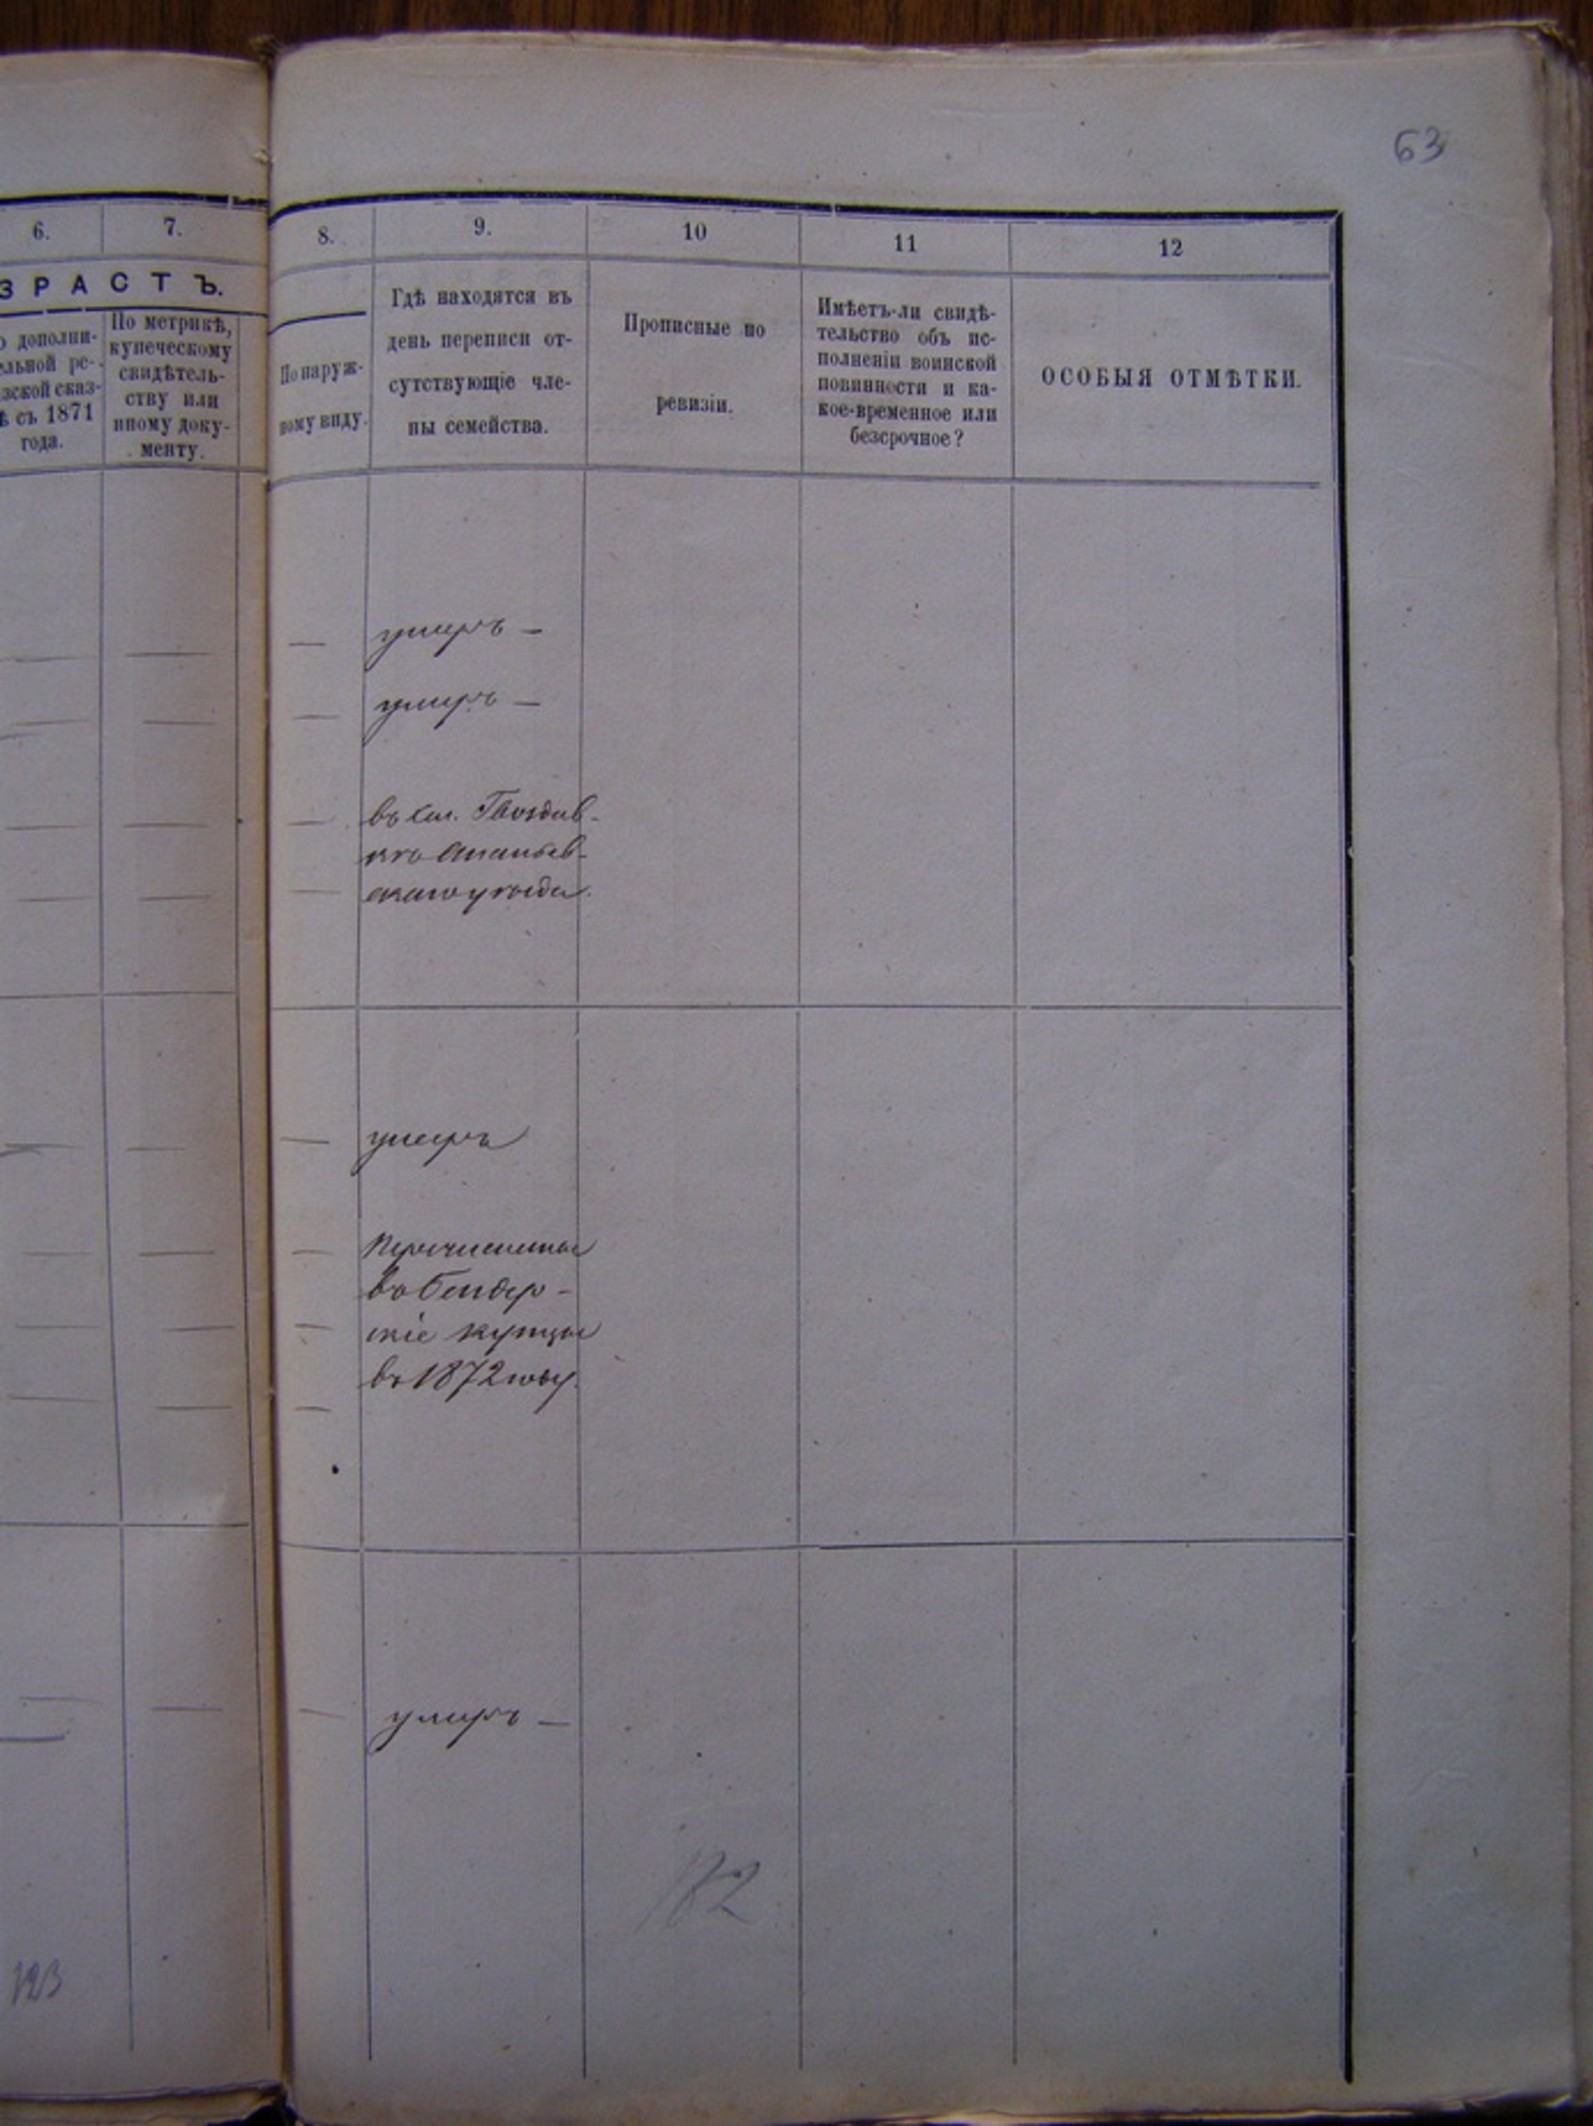 63
6. 7. 8. 9. 10 11 12
ЗРАСТЪ.
дополни-
ельной ре-
зской сказ-
ѣ съ 1871
года.
По метрикѣ,
купеческому
свидѣтель-
ству или
иному доку-
менту.
По наруж-
ному виду.
Гдѣ находятся въ
день переписи от-
сутствующіе чле-
ны семейства.
Прописные по
ревизіи.
Имѣетъ-ли свидѣ-
тельство объ ис-
полненіи воинской
повинности и ка-
кое-временное или
безсрочное?
ОСОБЫЯ ОТМѢТКИ.
— умеръ —
— умеръ —
въ сел. Гвоздав-
кѣ Ананьев-
скаго уѣзда.
— умеръ
перечислены
въ Бендер-
скіе купцы
въ 1872 году.
— умеръ —
182
123